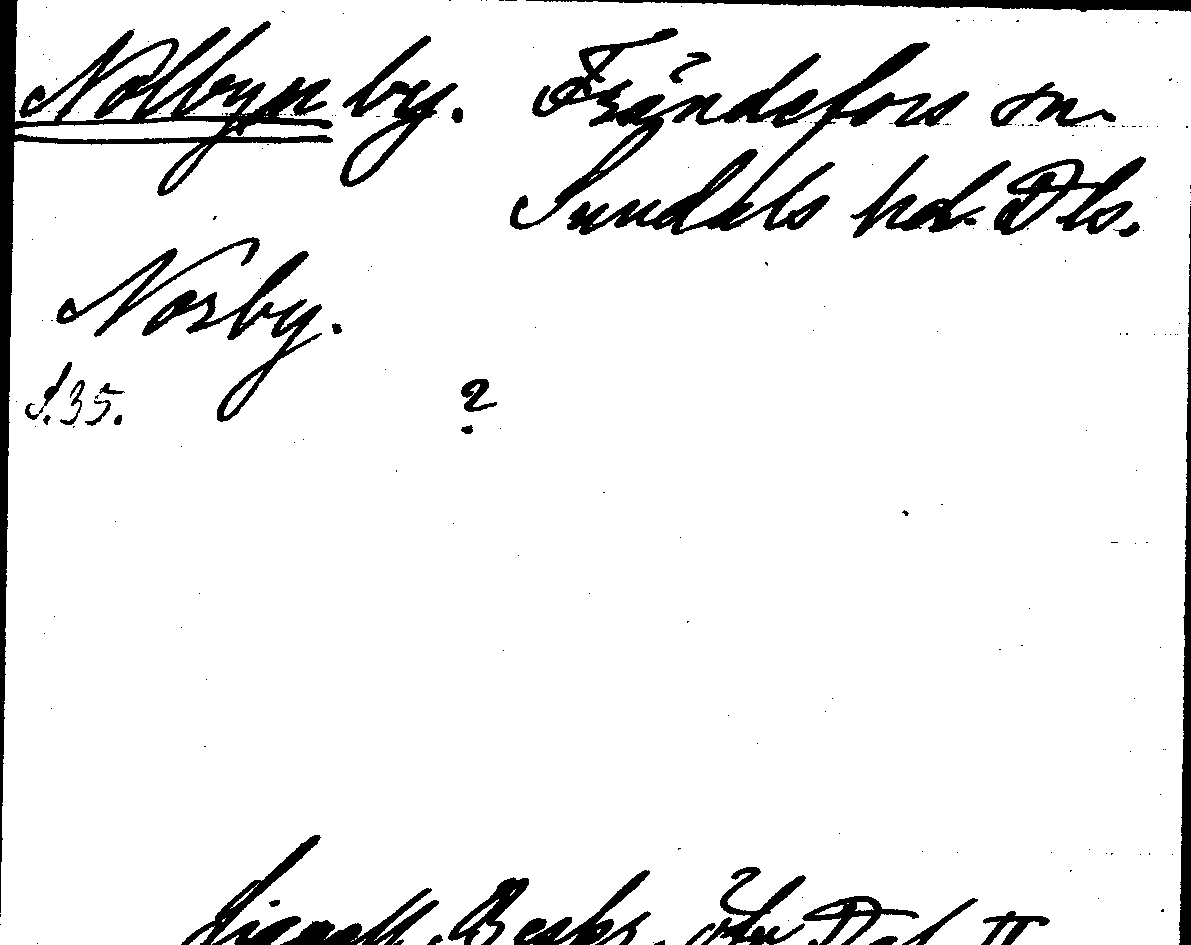 Nolbyn by. Frändefors sn.
Sundals hd. Dls.
Norby.
S.35. ?
Lignell, Beskr. öfv. Dal II